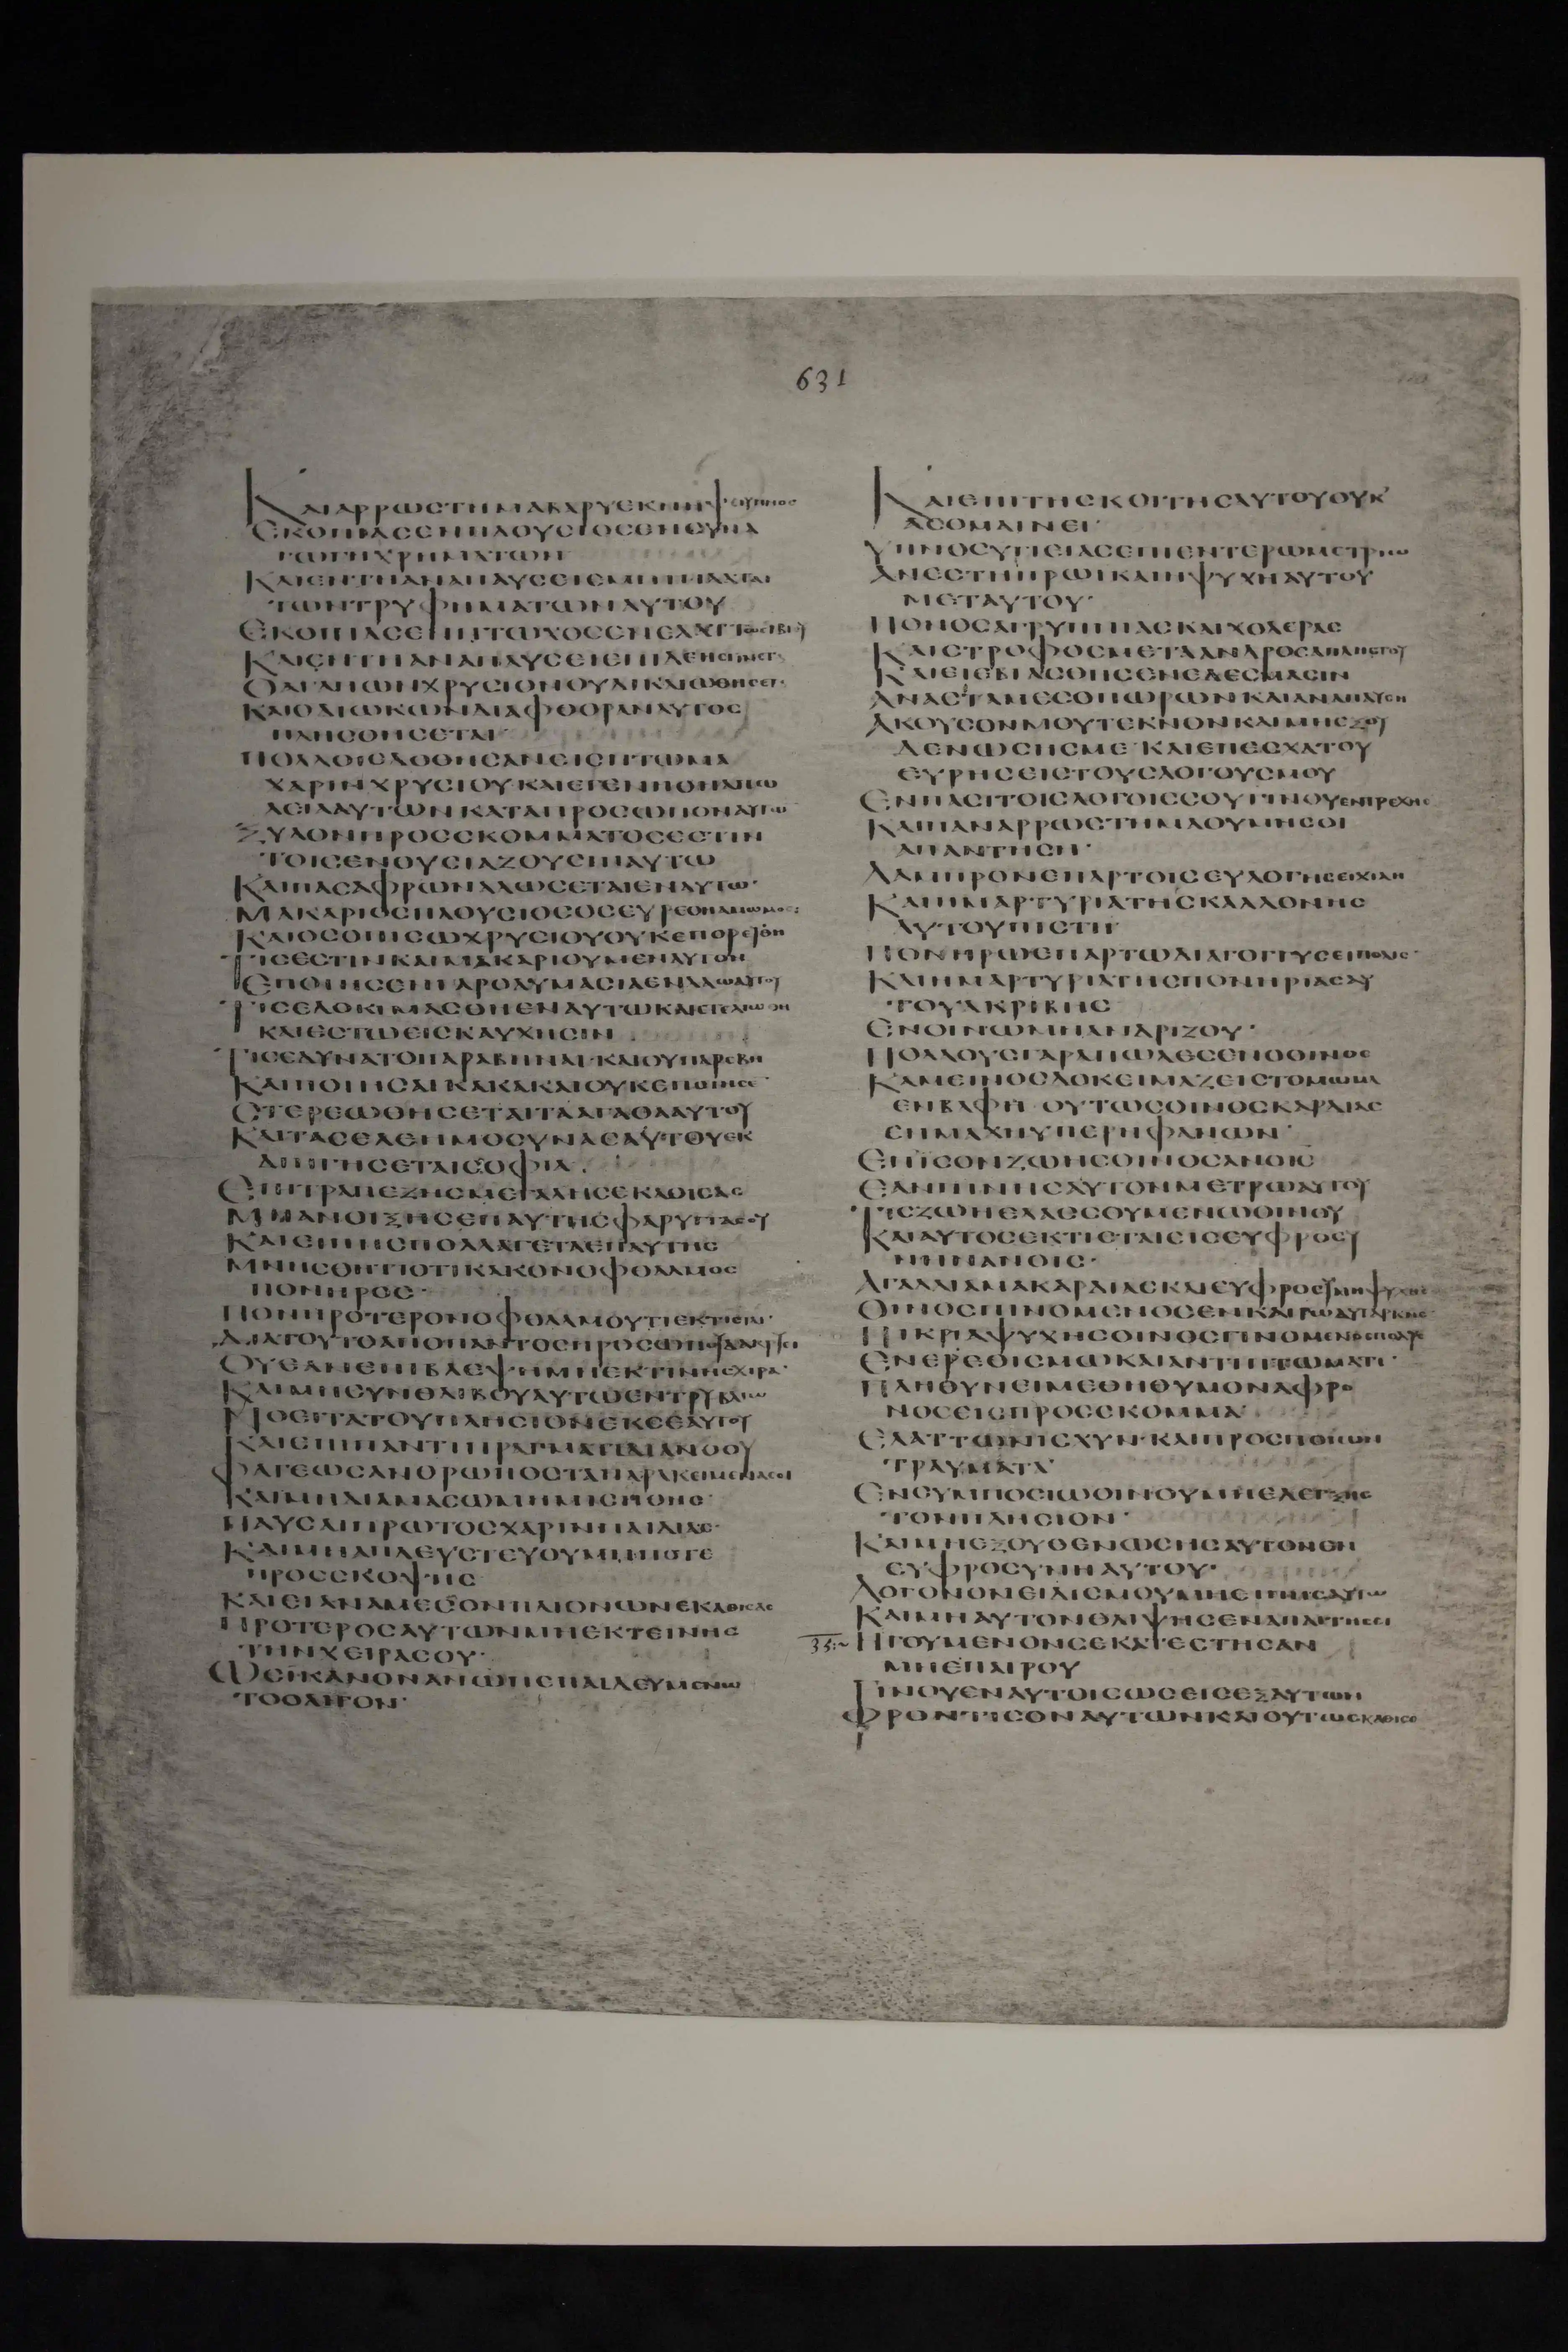 631
ΚΑΙΑΡΡΩϹΤΗΜΑΒΑΡΥΕΚΝΗΨΕΙΥΠΝΟϹ
ΕΚΟΠΙΑϹΕΝΠΛΟΥϹΙΟϹΕΝϹΥΝΑ
ΓΩΓΗΧΡΗΜΑΤΩΝ
ΚΑΙΕΝΤΗΑΝΑΠΑΥϹΕΙ
ΤΩΝΤΡΥΦΗΜΑΤΩΝΑΥΤΟΥ
ΕΚΟΠΙΑϹΕΝΠΤΩΧΟϹΕΝΕΛΑΤΤΩϹΙΒΙΟΥ
ΚΑΙΕΝΤΗΑΝΑΠΑΥϹΕΙΕΠΙΔΕΗϹ
ΟΑΓΑΠΩΝΧΡΥϹΙΟΝΟΥΔΙΚΑΙΩΘΗϹΕΤ
ΚΑΙΟΔΙΩΚΩΝΔΙΑΦΘΟΡΑΝΑΥΤΟϹ
ΠΛΗϹΘΗϹΕΤΑΙ
ΠΟΛΛΟΙΕΔΟΘΗϹΑΝΕΙϹΠΤΩΜΑ
ΧΑΡΙΝΧΡΥϹΙΟΥΚΑΙΕΓΕΝΗΘΗΑΠΩ
ΛΕΙΑΑΥΤΩΝΚΑΤΑΠΡΟϹΩΠΟΝΑΥΤΩ
ΞΥΛΟΝΠΡΟϹϹΚΟΜΜΑΤΟϹΕϹΤΙΝ
ΤΟΙϹΕΝΟΥϹΙΑΖΟΥϹΙΝΑΥΤΩ
ΚΑΙΠΑϹΑΦΡΩΝΑΛΩϹΕΤΑΙΕΝΑΥΤΩ·
ΜΑΚΑΡΙΟϹΠΛΟΥϹΙΟϹΟϹΕΥΡΕΘΗΑΜΩΜΟϹ
ΚΑΙΟϹΟΠΙϹΩΧΡΥϹΙΟΥΟΥΚΕΠΟΡΕΥΘΗ
ΤΙϹΕϹΤΙΝΚΑΙΜΑΚΑΡΙΟΥΜΕΝΑΥΤΟΝ
ΕΠΟΙΗϹΕΝΓΑΡΘΑΥΜΑϹΙΑΕΝΛΑΩΑΥΤΟΥ
ΤΙϹΕΔΟΚΙΜΑϹΘΗΕΝΑΥΤΩΚΑΙΕΤΕΛΙΩΘΗ
ΚΑΙΕϹΤΩΕΙϹΚΑΥΧΗϹΙΝ
ΤΙϹΕΔΥΝΑΤΟΠΑΡΑΒΗΝΑΙ·ΚΑΙΟΥΠΑΡΕΒΗ
ΚΑΙΠΟΙΗϹΑΙΚΑΚΑΚΑΙΟΥΚΕΠΟΙΗϹΕ·
ϹΤΕΡΕΩΘΗϹΕΤΑΙΤΑΑΓΑΘΑΑΥΤΟΥ
ΚΑΙΤΑϹΕΛΕΗΜΟϹΥΝΑϹΑΥΤΟΥΕΚ
ΔΙΗΓΗϹΕΤΑΙϹΟΦΙΑ.
ΕΠΙΤΡΑΠΕΖΗϹΜΕΓΑΛΗϹΕΚΑΘΙϹΑϹ
ΜΗΑΝΟΙΞΗϹΕΠΑΥΤΗϹΦΑΡΥΓΓΑϹΟΥ
ΚΑΙΕΙΠΗϹΠΟΛΛΑΓΕΤΑΕΠΑΥΤΗϹ
ΜΝΗϹΘΗΤΙΟΤΙΚΑΚΟΝΟΦΘΑΛΜΟϹ
ΠΟΝΗΡΟϹ·
ΠΟΝΗΡΟΤΕΡΟΝΟΦΘΑΛΜΟΥΤΙΕΚΤΙϹΤΑΙ·
ΔΙΑΤΟΥΤΟΑΠΟΠΑΝΤΟϹΠΡΟϹΩΠΟΥΔΑΚΡΥΕΙ
ΟΥΕΑΝΕΠΙΒΛΕΨΗΜΗΕΚΤΙΝΗϹΧΙΡΑ·
ΚΑΙΜΗϹΥΝΘΛΙΒΟΥΑΥΤΩΕΝΤΡΥΒΛΙΩ
ΝΟΕΙΤΑΤΟΥΠΛΗϹΙΟΝΕΚϹΕΑΥΤΟΥ
ΚΑΙΕΠΙΠΑΝΤΙΠΡΑΓΜΑΤΙΔΙΑΝΟΟΥ
ΦΑΓΕΩϹΑΝΘΡΩΠΟϹΤΑΠΑΡΑΚΕΙΜΕΝΑϹΟΙ
ΚΑΙΜΗΔΙΑΜΑϹΩΜΗΜΙϹΗΘΗϹ·
ΠΑΥϹΑΙΠΡΩΤΟϹΧΑΡΙΝΠΑΙΔΙΑϹ·
ΚΑΙΜΗΑΠΛΕΥϹΤΕΥΟΥΜΗΠΟΤΕ
ΠΡΟϹϹΚΟΨΗϹ
ΚΑΙΕΙΑΝΑΜΕϹΟΝΠΛΙΟΝΩΝΕΚΑΘΙϹΑϹ
ΠΡΟΤΕΡΟϹΑΥΤΩΝΜΗΕΚΤΕΙΝΗϹ
ΤΗΝΧΕΙΡΑϹΟΥ·
ΩϹΙΚΑΝΟΝΑΝΘΡΩΠΩΠΕΠΑΙΔΕΥΜΕΝΩ
ΤΟΟΛΙΓΟΝ·
ΚΑΙΕΠΙΤΗϹΚΟΙΤΗϹΑΥΤΟΥΟΥΚ
ΑϹΘΜΑΙΝΕΙ·
ΥΠΝΟϹΥΓΕΙΑϹΕΠΙΕΝΤΕΡΩΜΕΤΡΙΩ
ΑΝΕϹΤΗΠΡΩΙΚΑΙΗΨΥΧΗΑΥΤΟΥ
ΜΕΤΑΥΤΟΥ·
ΠΟΝΟϹΑΓΡΥΠΝΙΑϹΚΑΙΧΟΛΕΡΑϹ
ΚΑΙϹΤΡΟΦΟϹΜΕΤΑΑΝΔΡΟϹΑΠΛΗϹΤΟΥ
ΚΑΙΕΙΕΒΙΑϹΘΗϹΕΝΕΔΕϹΜΑϹΙΝ
ΑΝΑϹΤΑΜΕϹΟΠΩΡΩΝΚΑΙΑΝΑΠΑΥϹΗ
ΑΚΟΥϹΟΝΜΟΥΤΕΚΝΟΝΚΑΙΜΗΕΞΟΥ
ΔΕΝΩϹΗϹΜΕ·ΚΑΙΕΠΕϹΧΑΤΟΥ
ΕΥΡΗϹΕΙϹΤΟΥϹΛΟΓΟΥϹΜΟΥ
ΕΝΠΑϹΙΤΟΙϹΛΟΓΟΙϹϹΟΥΓΙΝΟΥΕΝΤΡΕΧΗϹ
ΚΑΙΠΑΝΑΡΡΩϹΤΗΜΑΟΥΜΗϹΟΙ
ΑΠΑΝΤΗϹΗ·
ΛΑΜΠΡΟΝΕΠΑΡΤΟΙϹΕΥΛΟΓΗϹΕΙΧΙΛΗ
ΚΑΙΗΜΑΡΤΥΡΙΑΤΗϹΚΑΛΛΟΝΗϹ
ΑΥΤΟΥΠΙϹΤΗ
ΠΟΝΗΡΩΕΠΑΡΤΩΔΙΑΓΟΓΓΥϹΕΙΠΟΛΙϹ·
ΚΑΙΗΜΑΡΤΥΡΙΑΤΗϹΠΟΝΗΡΙΑϹΑΥ
ΤΟΥΑΚΡΙΒΗϹ
ΕΝΟΙΝΩΜΗΑΝΔΡΙΖΟΥ·
ΠΟΛΛΟΥϹΓΑΡΑΠΩΛΕϹΕΝΟΟΙΝΟϹ
ΚΑΜΕΙΝΟϹΔΟΚΕΙΜΑΖΕΙϹΤΟΜΩΜΑ
ΕΝΒΑΦΗ·ΟΥΤΩϹΟΙΝΟϹΚΑΡΔΙΑϹ
ΕΝΜΑΧΗΥΠΕΡΗΦΑΝΩΝ·
ΕΠΙϹΟΝΖΩΗϹΟΙΝΟϹΑΝΟΙϹ
ΕΑΝΠΙΝΗϹΑΥΤΟΝΜΕΤΡΩΑΥΤΟΥ
ΤΙϹΖΩΗΕΛΑϹϹΟΥΜΕΝΩΟΙΝΟΥ
ΚΑΙΑΥΤΟϹΕΚΤΙϹΤΑΙΕΙϹΕΥΦΡΟϹΥ
ΝΗΝΑΝΟΙϹ·
ΑΓΑΛΛΙΑΜΑΚΑΡΔΙΑϹΚΑΙΕΥΦΡΟϹΥΝΗΨΥΧΗϹ
ΟΙΝΟϹΠΙΝΟΜΕΝΟϹΕΝΚΑΙΡΩΑΥΤΑΡΚΗϹ
ΠΙΚΡΙΑΨΥΧΗϹΟΙΝΟϹΠΙΝΟΜΕΝΟϹΠΟΛΥϹ
ΕΝΕΡΕΘΙϹΜΩΚΑΙΑΝΤΙΠΤΩΜΑΤΙ·
ΠΛΗΘΥΝΕΙΜΕΘΗΘΥΜΟΝΑΦΡΟ
ΝΟϹΕΙϹΠΡΟϹϹΚΟΜΜΑ·
ΕΛΑΤΤΩΝΙϹΧΥΝ·ΚΑΙΠΡΟϹΠΟΙΩΝ
ΤΡΑΥΜΑΤΑ·
ΕΝϹΥΜΠΟϹΙΩΟΙΝΟΥΜΗΕΛΕΓΞΗϹ
ΤΟΝΠΛΗϹΙΟΝ·
ΚΑΙΜΗΕΞΟΥΘΕΝΩϹΗϹΑΥΤΟΝΕΝ
ΕΥΦΡΟϹΥΝΗΑΥΤΟΥ·
ΛΟΓΟΝΟΝΕΙΔΙϹΜΟΥΜΗΕΙΠΗϹΑΥΤΩ
ΚΑΙΜΗΑΥΤΟΝΘΛΙΨΗϹΕΝΑΠΑΙΤΗϹΕΙ
35:~ ΗΓΟΥΜΕΝΟΝϹΕΚΑΤΕϹΤΗϹΑΝ
ΜΗΕΠΑΙΡΟΥ
ΓΙΝΟΥΕΝΑΥΤΟΙϹΩϹΕΙϹΕΞΑΥΤΩΝ
ΦΡΟΝΤΙϹΟΝΑΥΤΩΝΚΑΙΟΥΤΩϹΚΑΘΙϹΟ